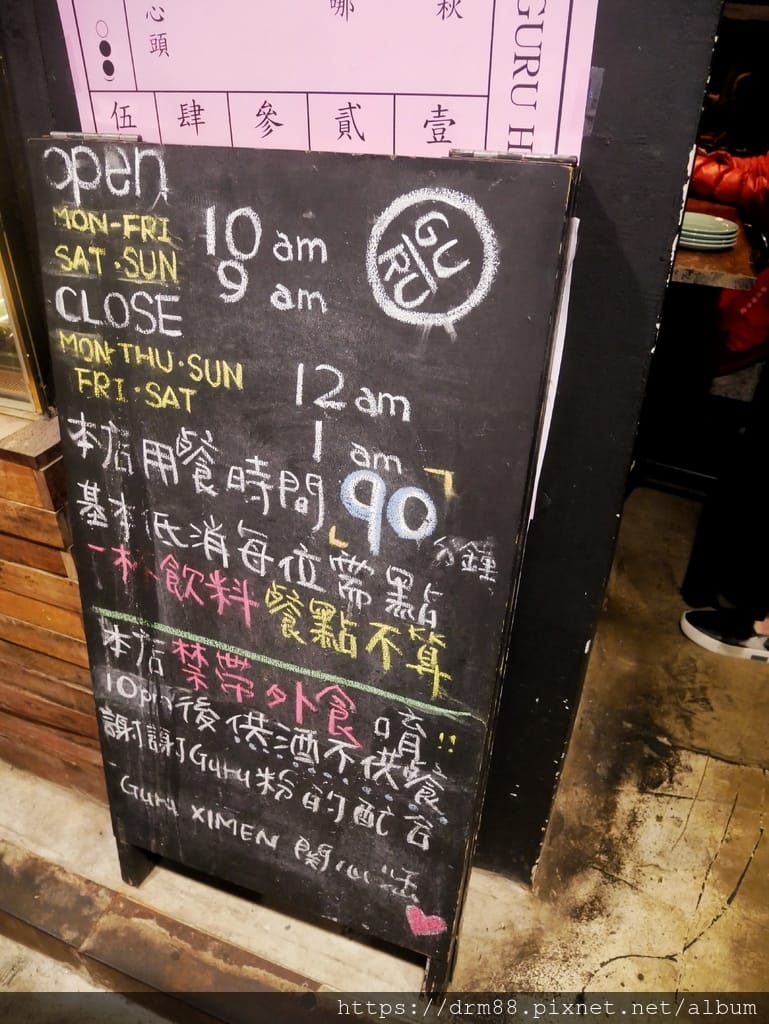 心頭
哪
秋
伍 肆 參 貳 壹
GURU H
open
MON-FRI 10 am
SAT·SUN 9 am
GU
RU
CLOSE
MON·THU·SUN 12 am
FRI·SAT 1 am
本店用餐時間90分鐘
基本低消每位需點
一杯飲料 餐點不算
本店禁帶外食唷!!
10pm後供酒不供餐
謝謝Guru粉的配合
Guru XIMEN 關心您
https://drm88.pixnet.net/album